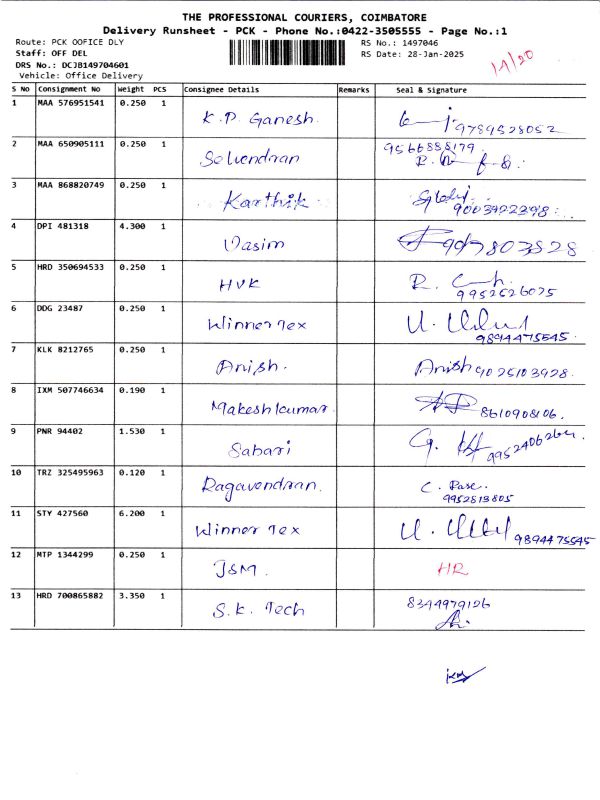 THE PROFESSIONAL COURIERS, COIMBATORE
Delivery Runsheet - PCK - Phone No.:0422-3505555 - Page No.:1
Route: PCK OOFICE DLY RS No.: 1497046
Staff: OFF DEL RS Date: 28-Jan-2025
DRS No.: DCJB149704601
Vehicle: Office Delivery
14/20
S No Consignment No Weight PCS Consignee Details Remarks Seal & Signature
1 MAA 576951541 0.250 1 K.P. Ganesh. 9789528052
2 MAA 650905111 0.250 1 Selvendran 9566888179
3 MAA 868820749 0.250 1 Karthik 9003922398
4 DPI 481318 4.300 1 Vasim 9047803828
5 HRD 350694533 0.250 1 HVK 9952526075
6 DDG 23487 0.250 1 Winner Tex 9894475545
7 KLK 8212765 0.250 1 Anish. Anish 9025103928.
8 IXM 507746634 0.190 1 Makeshkumar 8610908106.
9 PNR 94402 1.530 1 Sabari
10 TRZ 325495963 0.120 1 Ragavendran. 9952813805
11 STY 427560 6.200 1 Winner Tex 9894475545
12 MTP 1344299 0.250 1 JSM. HR
13 HRD 700865882 3.350 1 S.K. Tech 8344979126